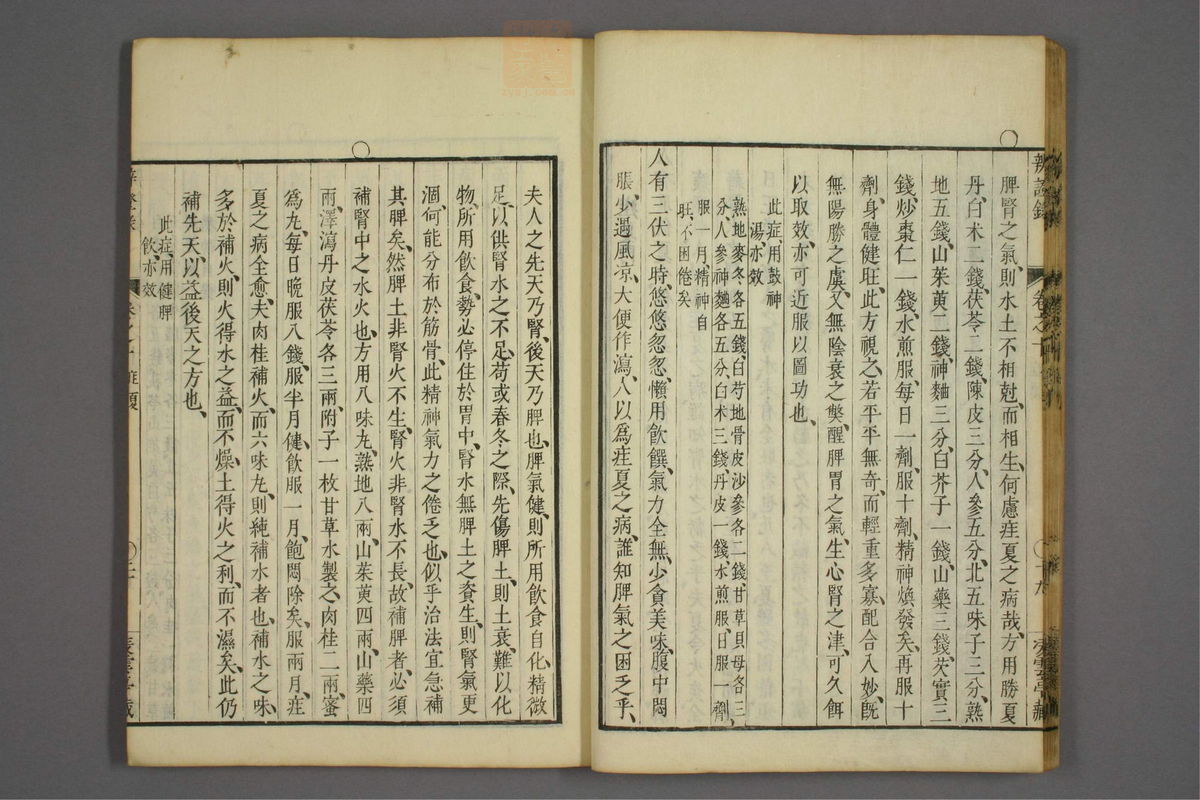 辨證錄 卷之十
脾腎之氣、則水土不相尅、而相生、何慮疰夏之病哉、方用勝夏
丹、白朮二錢、茯苓二錢、陳皮三分、人參五分、北五味子三分、熟
地五錢、山茱萸二錢、神麯三分、白芥子一錢、山藥三錢、芡實三
錢、炒棗仁一錢、水煎服、每日一劑、服十劑、精神煥發矣、再服十
劑、身體健旺、此方視之、若平平無奇、而輕重多寡、配合入妙、旣
無陽勝之虞、又無陰衰之獘、醒脾胃之氣、生心腎之津、可久餌
以取效、亦可近服以圖功也、
此症、用鼓神
湯、亦效
熟地麥冬各五錢、白芍地骨皮沙參各二錢、甘草貝母各三
分、人參神麯各五分、白朮三錢、丹皮一錢、水煎服、日服一劑、
服一月、精神自
旺、不困倦矣
人有三伏之時、悠悠忽忽、懶用飲饌、氣力全無、少貪美味、腹中悶
脹、少遇風凉、大便作瀉、人以爲疰夏之病、誰知脾氣之困乏乎、
夫人之先天乃腎、後天乃脾也、脾氣健、則所用飲食自化、精微
足、以供腎水之不足、苟或春冬之際、先傷脾土、則土衰、難以化
物、所用飲食、勢必停住於胃中、腎水無脾土之資生、則腎氣更
涸、何能分布於筋骨、此精神氣力之倦乏也、似乎治法宜急補
其脾矣、然脾土非腎火不生、腎火非腎水不長、故補脾者、必須
補腎中之水火也、方用八味丸、熟地八兩、山茱萸四兩、山藥四
兩、澤瀉丹皮茯苓各三兩、附子一枚甘草水製之、肉桂二兩、蜜
爲丸、每日晚服八錢、服半月、健飲、服一月、飽悶除矣、服兩月、疰
夏之病全愈、夫肉桂補火、而六味丸、則純補水者也、補水之味、
多於補火、則火得水之益、而不燥、土得火之利、而不濕矣、此仍
補先天、以益後天之方也、
此症、用健脾
飲、亦效